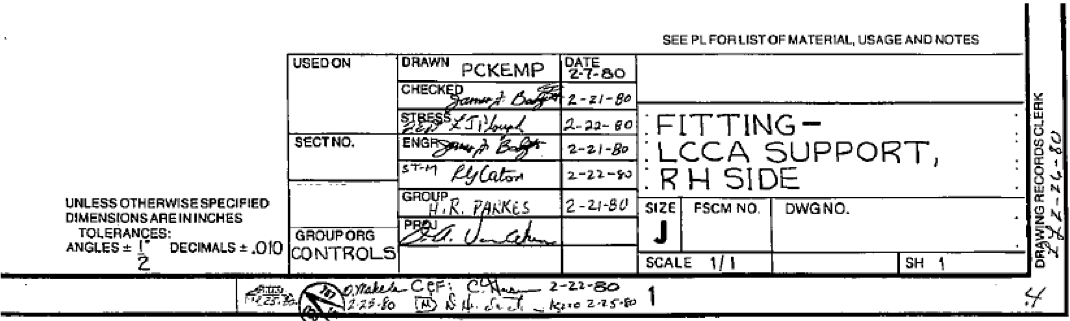 SEE PL FOR LIST OF MATERIAL, USAGE AND NOTES
USED ON
DRAWN PCKEMP
DATE 2-7-80
CHECKED 2-21-80
STRESS 2-22-80
SECT NO.
ENGR 2-21-80
ST-M RLCaton 2-22-80
GROUP H.R. PARKES 2-21-80
PROJ
FITTING-
LCCA SUPPORT,
RH SIDE
UNLESS OTHERWISE SPECIFIED
DIMENSIONS ARE IN INCHES
TOLERANCES:
ANGLES ± 1°/2 DECIMALS ± .010
GROUP ORG
CONTROLS
SIZE J
FSCM NO.
DWG NO.
SCALE 1/1
SH 1
DRAWING RECORDS CLERK
2-26-80
2-25-80
C&F: 2-22-80
2-25-80
1
4